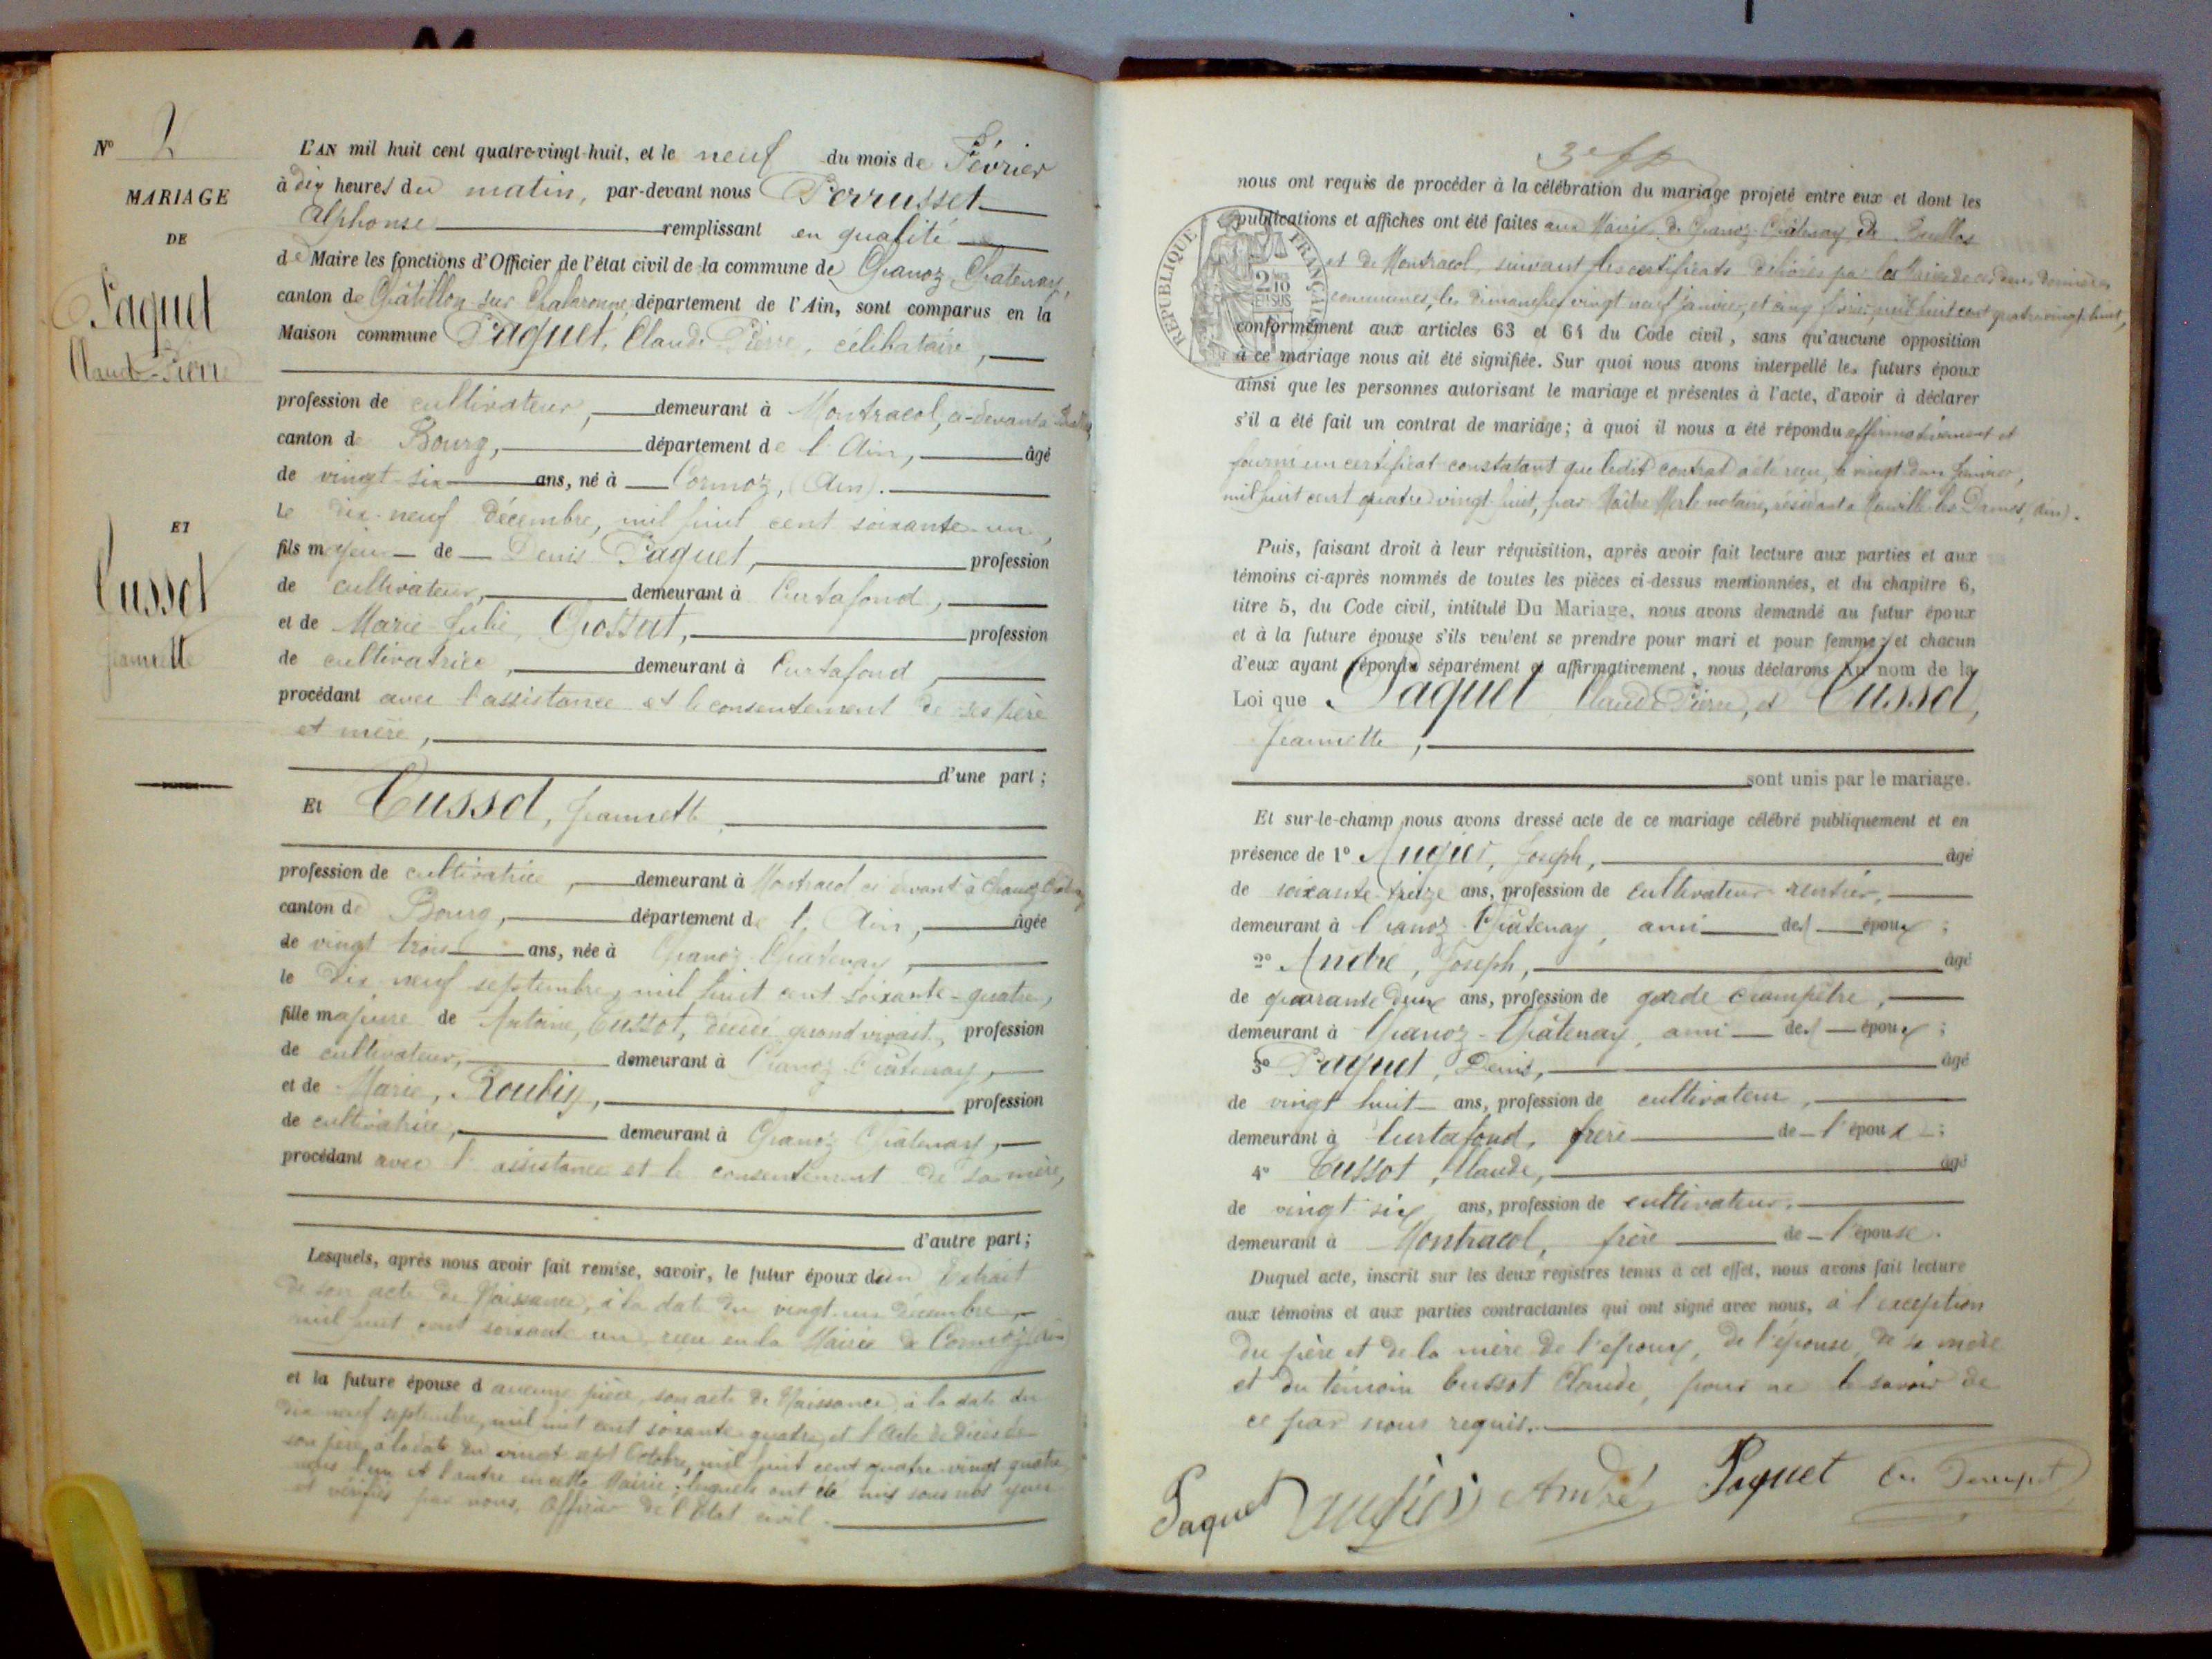 N° 2
MARIAGE
DE
Paquet
Claude-Pierre
ET
Cussot
Jeannette
L'AN mil huit cent quatre-vingt-huit, et le neuf du mois de Février
à dix heures du matin, par-devant nous Perrusset
Alphonse remplissant en qualité
de Maire les fonctions d'Officier de l'état civil de la commune de Chanoz-Chatenay,
canton de Châtillon-sur-Chalaronne, département de l'Ain, sont comparus en la
Maison commune Paquet, Claude Pierre, célibataire,
profession de cultivateur, demeurant à Montracol, ci-devant à Buellas
canton de Bourg, département de l'Ain, âgé
de vingt-six ans, né à Cormoz, (Ain).
le dix-neuf décembre, mil huit cent soixante-un,
fils majeur de Denis Paquet, profession
de cultivateur, demeurant à Curtafond,
et de Marie Julie, Chossat, profession
de cultivatrice, demeurant à Curtafond,
procédant avec l'assistance et le consentement de ses père
et mère,
d'une part;
Et Cussot, Jeannette
profession de cultivatrice, demeurant à Montracol ci devant à Chanoz-Châtenay
canton de Bourg, département de l'Ain, âgée
de vingt trois ans, née à Chanoz-Châtenay,
le dix neuf septembre, mil huit cent soixante-quatre,
fille majeure de Antoine, Cussot, décédé quand vivait, profession
de cultivateur, demeurant à Chanoz-Châtenay,
et de Marie, Roubin, profession
de cultivatrice, demeurant à Chanoz Châtenay,
procédant avec l'assistance et le consentement de sa mère,
d'autre part;
Lesquels, après nous avoir fait remise, savoir, le futur époux d'un Extrait
de son acte de Naissance, à la date du vingt-un décembre,
mil huit cent soixante un, reçu en la Mairie de Cormoz (Ain)
et la future épouse d aucune pièce, son acte de Naissance à la date du
dix neuf septembre, mil huit cent soixante quatre, et l'acte de décès de
son père, à la date du vingt sept Octobre, mil huit cent quatre-vingt quatre
reçus l'un et l'autre en cette Mairie, lesquels ont été mis sous nos yeux
et vérifiés par nous, Officier de l'Etat civil.
nous ont requis de procéder à la célébration du mariage projeté entre eux et dont les
publications et affiches ont été faites aux Mairies de Chanoz-Châtenay, de Buellas
et de Montracol, suivant les certificats délivrés par les Maires de ces deux dernières
communes, les dimanches vingt neuf janvier, et cinq février, mil huit cent quatre-vingt-huit,
RÉPUBLIQUE FRANÇAISE
2/10 EN SUS
conformément aux articles 63 et 64 du Code civil, sans qu'aucune opposition
à ce mariage nous ait été signifiée. Sur quoi nous avons interpellé les futurs époux
ainsi que les personnes autorisant le mariage et présentes à l'acte, d'avoir à déclarer
s'il a été fait un contrat de mariage; à quoi il nous a été répondu affirmativement et
fourni un certificat constatant que ledit contrat a été reçu, le vingt deux Janvier,
mil huit cent quatre vingt huit, par Maître Merle notaire, résidant à Neuville-les-Dames, (Ain).
Puis, faisant droit à leur réquisition, après avoir fait lecture aux parties et aux
témoins ci-après nommés de toutes les pièces ci-dessus mentionnées, et du chapitre 6,
titre 5, du Code civil, intitulé Du Mariage, nous avons demandé au futur époux
et à la future épouse s'ils veulent se prendre pour mari et pour femme; et chacun
d'eux ayant répondu séparément et affirmativement, nous déclarons au nom de la
Loi que Paquet Claude Pierre, et Cussot,
Jeannette,
sont unis par le mariage.
Et sur-le-champ nous avons dressé acte de ce mariage célébré publiquement et en
présence de 1° Augier, Joseph, âgé
de soixante-treize ans, profession de cultivateur rentier,
demeurant à Chanoz-Châtenay, ami des époux;
2° André, Joseph, âgé
de quarante deux ans, profession de garde champêtre,
demeurant à Chanoz-Châtenay, ami des époux;
3° Paquet, Denis, âgé
de vingt huit ans, profession de cultivateur,
demeurant à Curtafond, frère de l'époux;
4° Cussot, Claude, âgé
de vingt six ans, profession de cultivateur,
demeurant à Montracol, frère de l'épouse.
Duquel acte, inscrit sur les deux registres tenus à cet effet, nous avons fait lecture
aux témoins et aux parties contractantes qui ont signé avec nous, à l'exception
du père et de la mère de l'époux, de l'épouse, de sa mère
et du témoin Cussot Claude, pour ne le savoir de
ce par nous requis.
Paquet Augier André Paquet